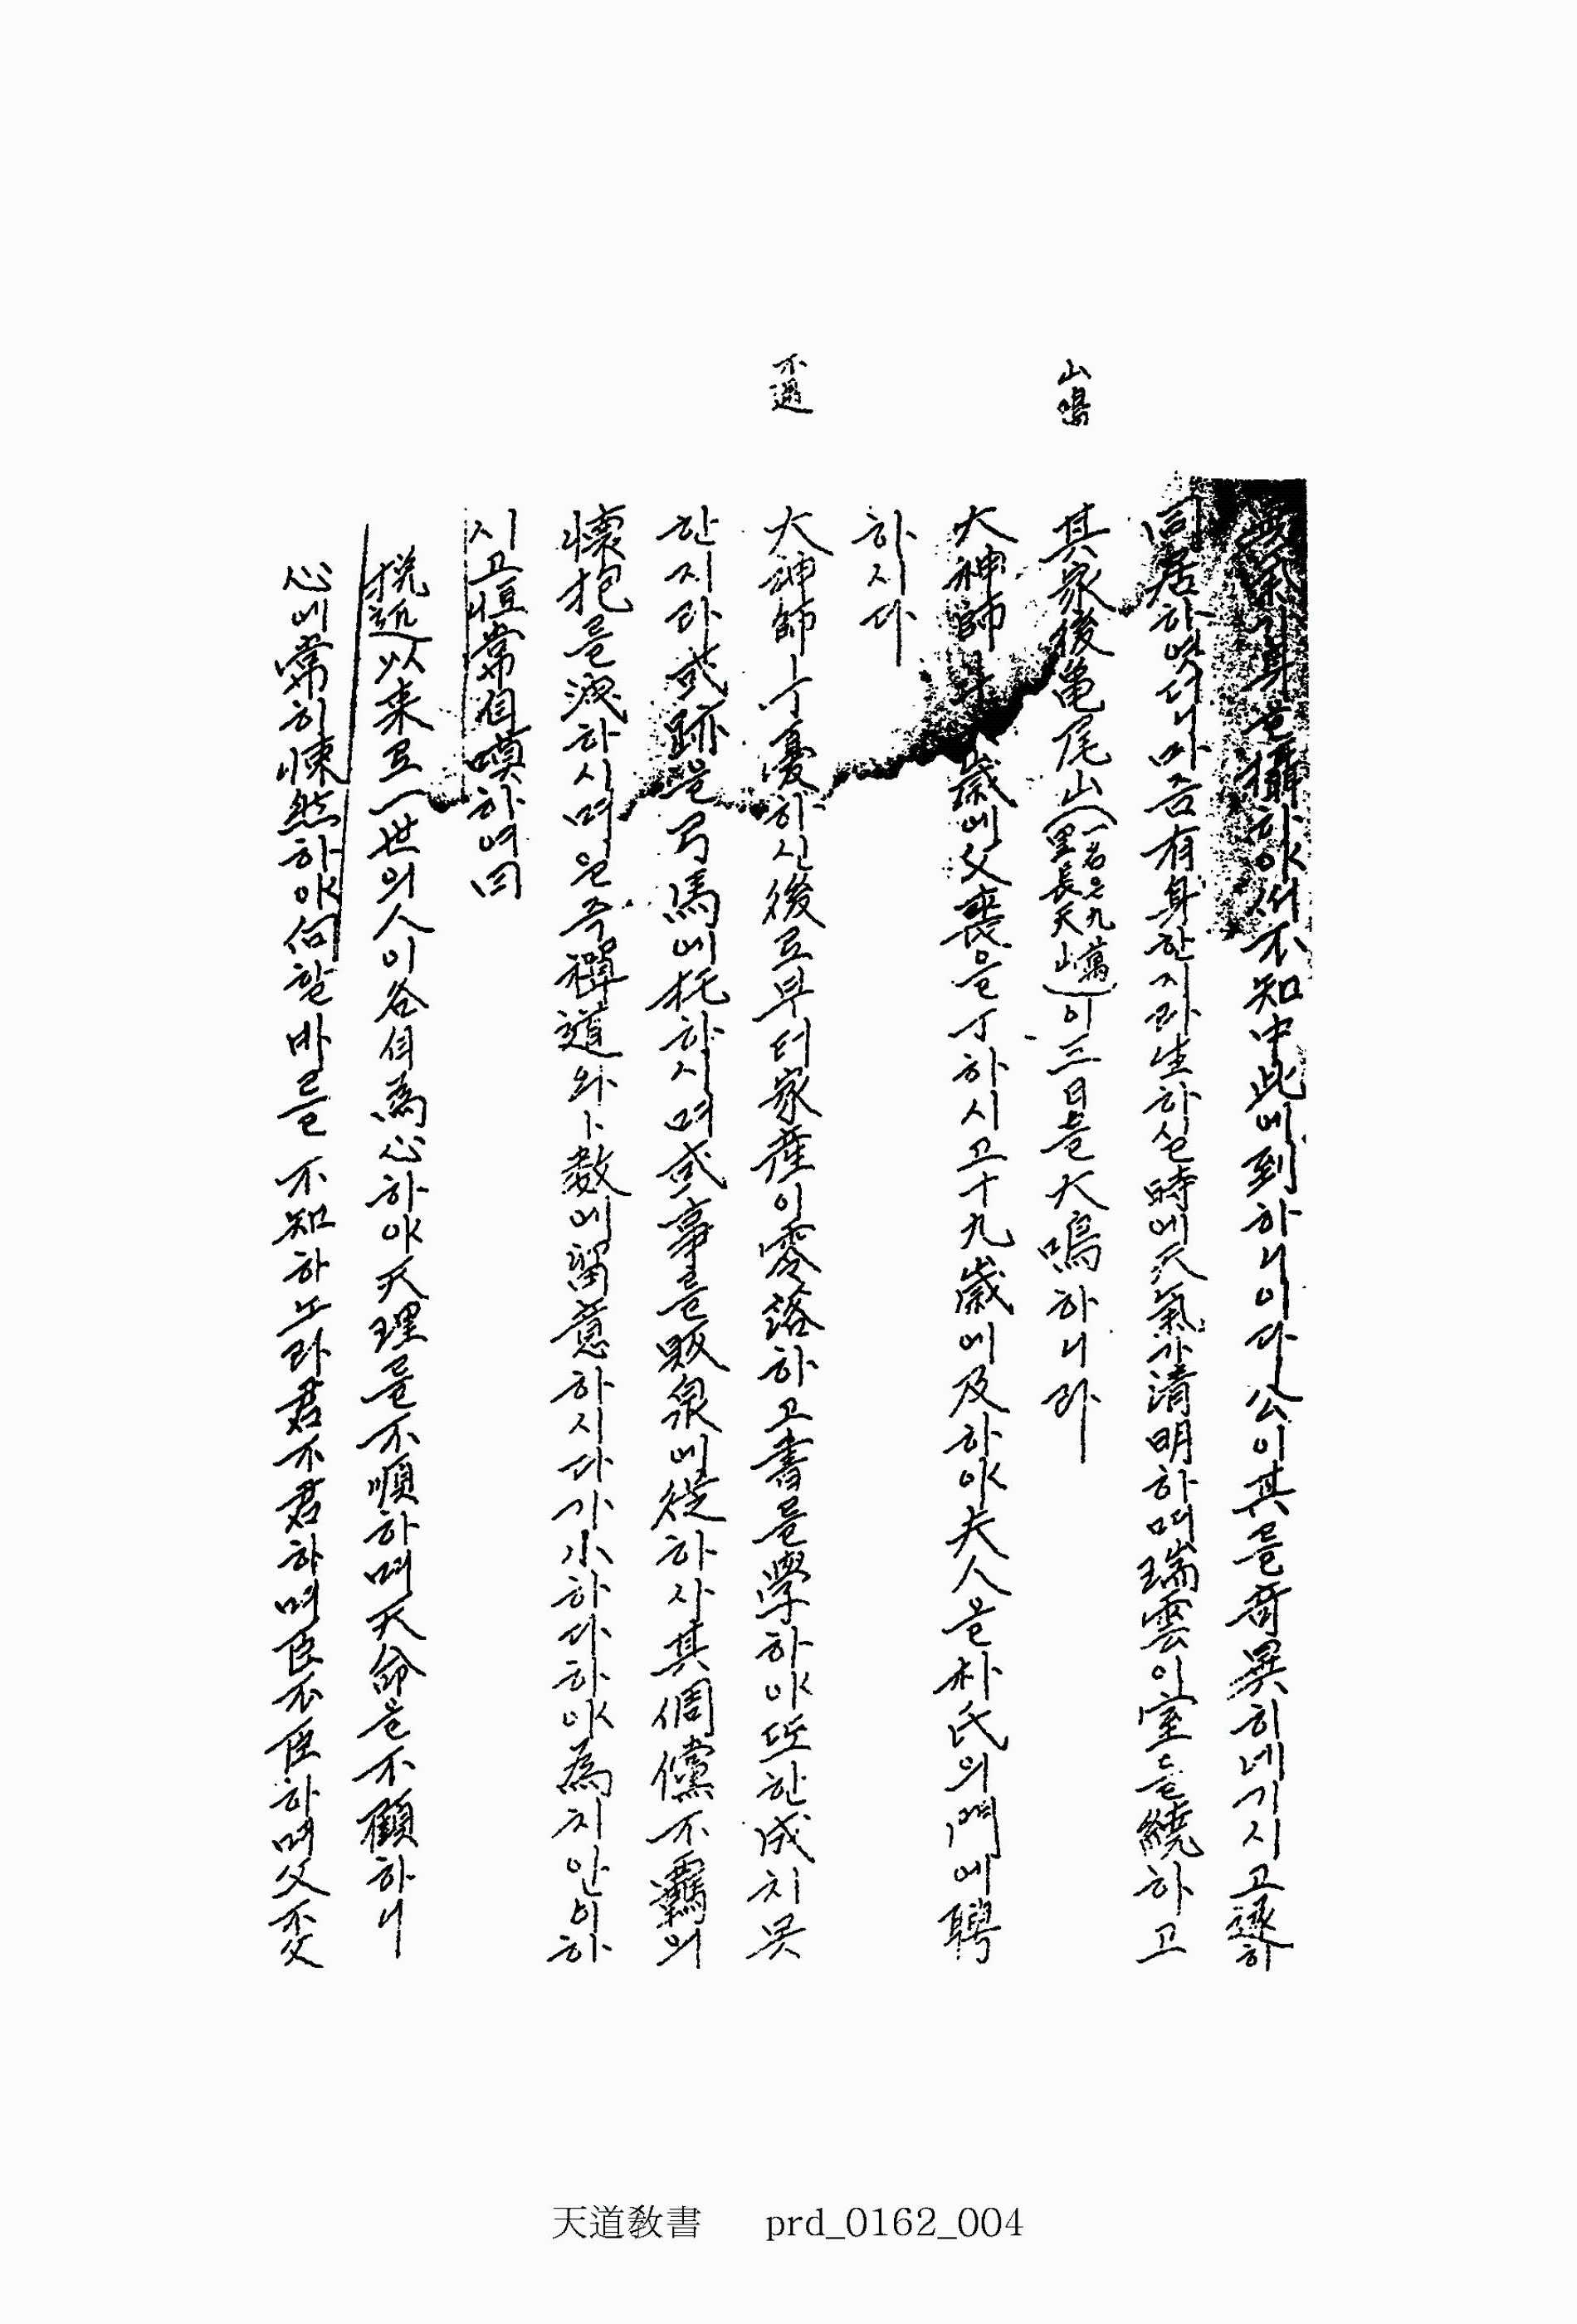 山鳴
不遇
異氣가身을攝하야서不知中此에到하니이다公이其를奇異히네기시고遂히
同居하엿더니마츰有身한지라生하실時에天氣가淸明하며瑞雲이室을繞하고
其家後龜尾山(一名은九萬里長天山)이三日을大鳴하니라
大神師 歲에父喪을丁하시고十九歲에及하야夫人을朴氏의門에聘
하시다
大神師丁憂하신後로부터家産이零落하고書를學하야또한成치못
한지라或跡을弓馬에托하시며或事를販泉에從하사其倜儻不羈의
懷抱를洩하시며 禪道와卜數에留意하시다가小하다하야爲지안이하
시고恒常自嘆하여曰
挽近以來로一世의人이各自爲心하야天理를不順하며天命을不顧하니
心에常히悚然하야向할바를不知하노라君不君하며臣不臣하며父不父
天道敎書 prd_0162_004